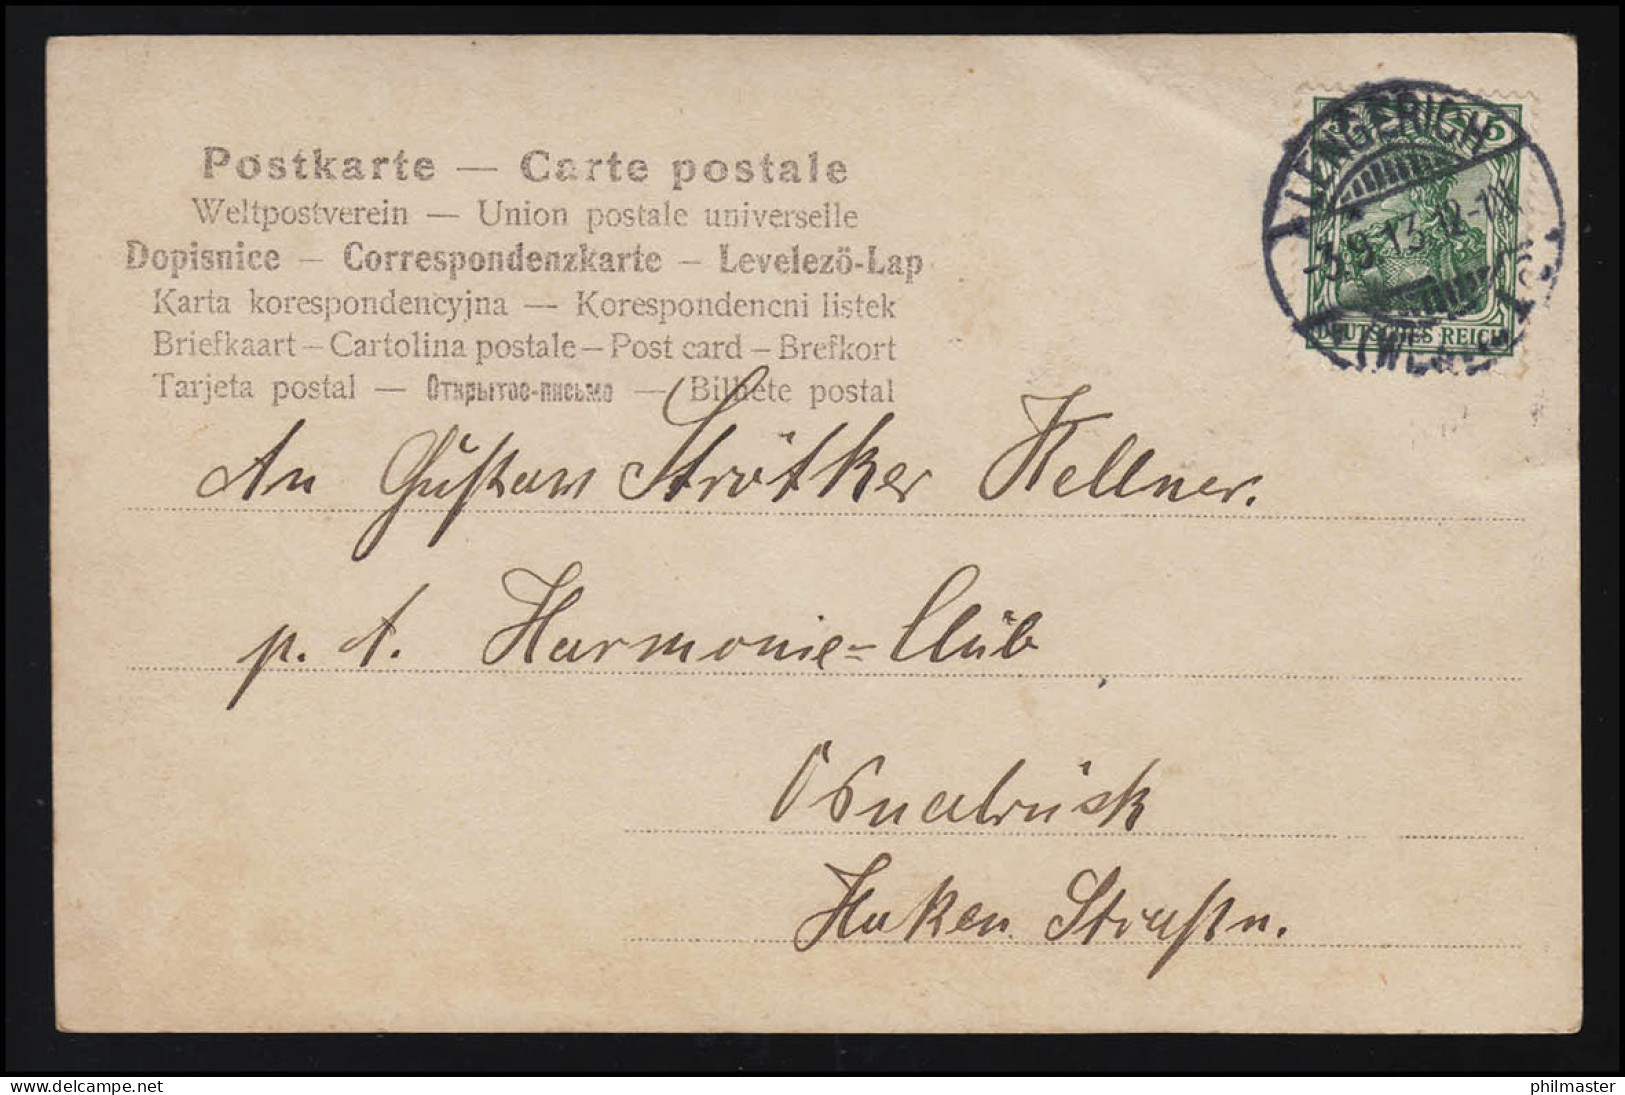 Postkarte — Carte postale
Weltpostverein — Union postale universelle
Dopisnice — Correspondenzkarte — Levelező-Lap
Karta korespondencyjna — Korespondencni listek
Briefkaart – Cartolina postale – Post card – Brefkort
Tarjeta postal — Открытое-письмо — Bilhete postal
LENGERICH
5
-3.9.13.12-1N
DEUTSCHES REICH
An Gustav Strötker Kellner.
p. A. Harmonie=Club
Osnabrück
Haken Straße
www.delcampe.net
philmaster